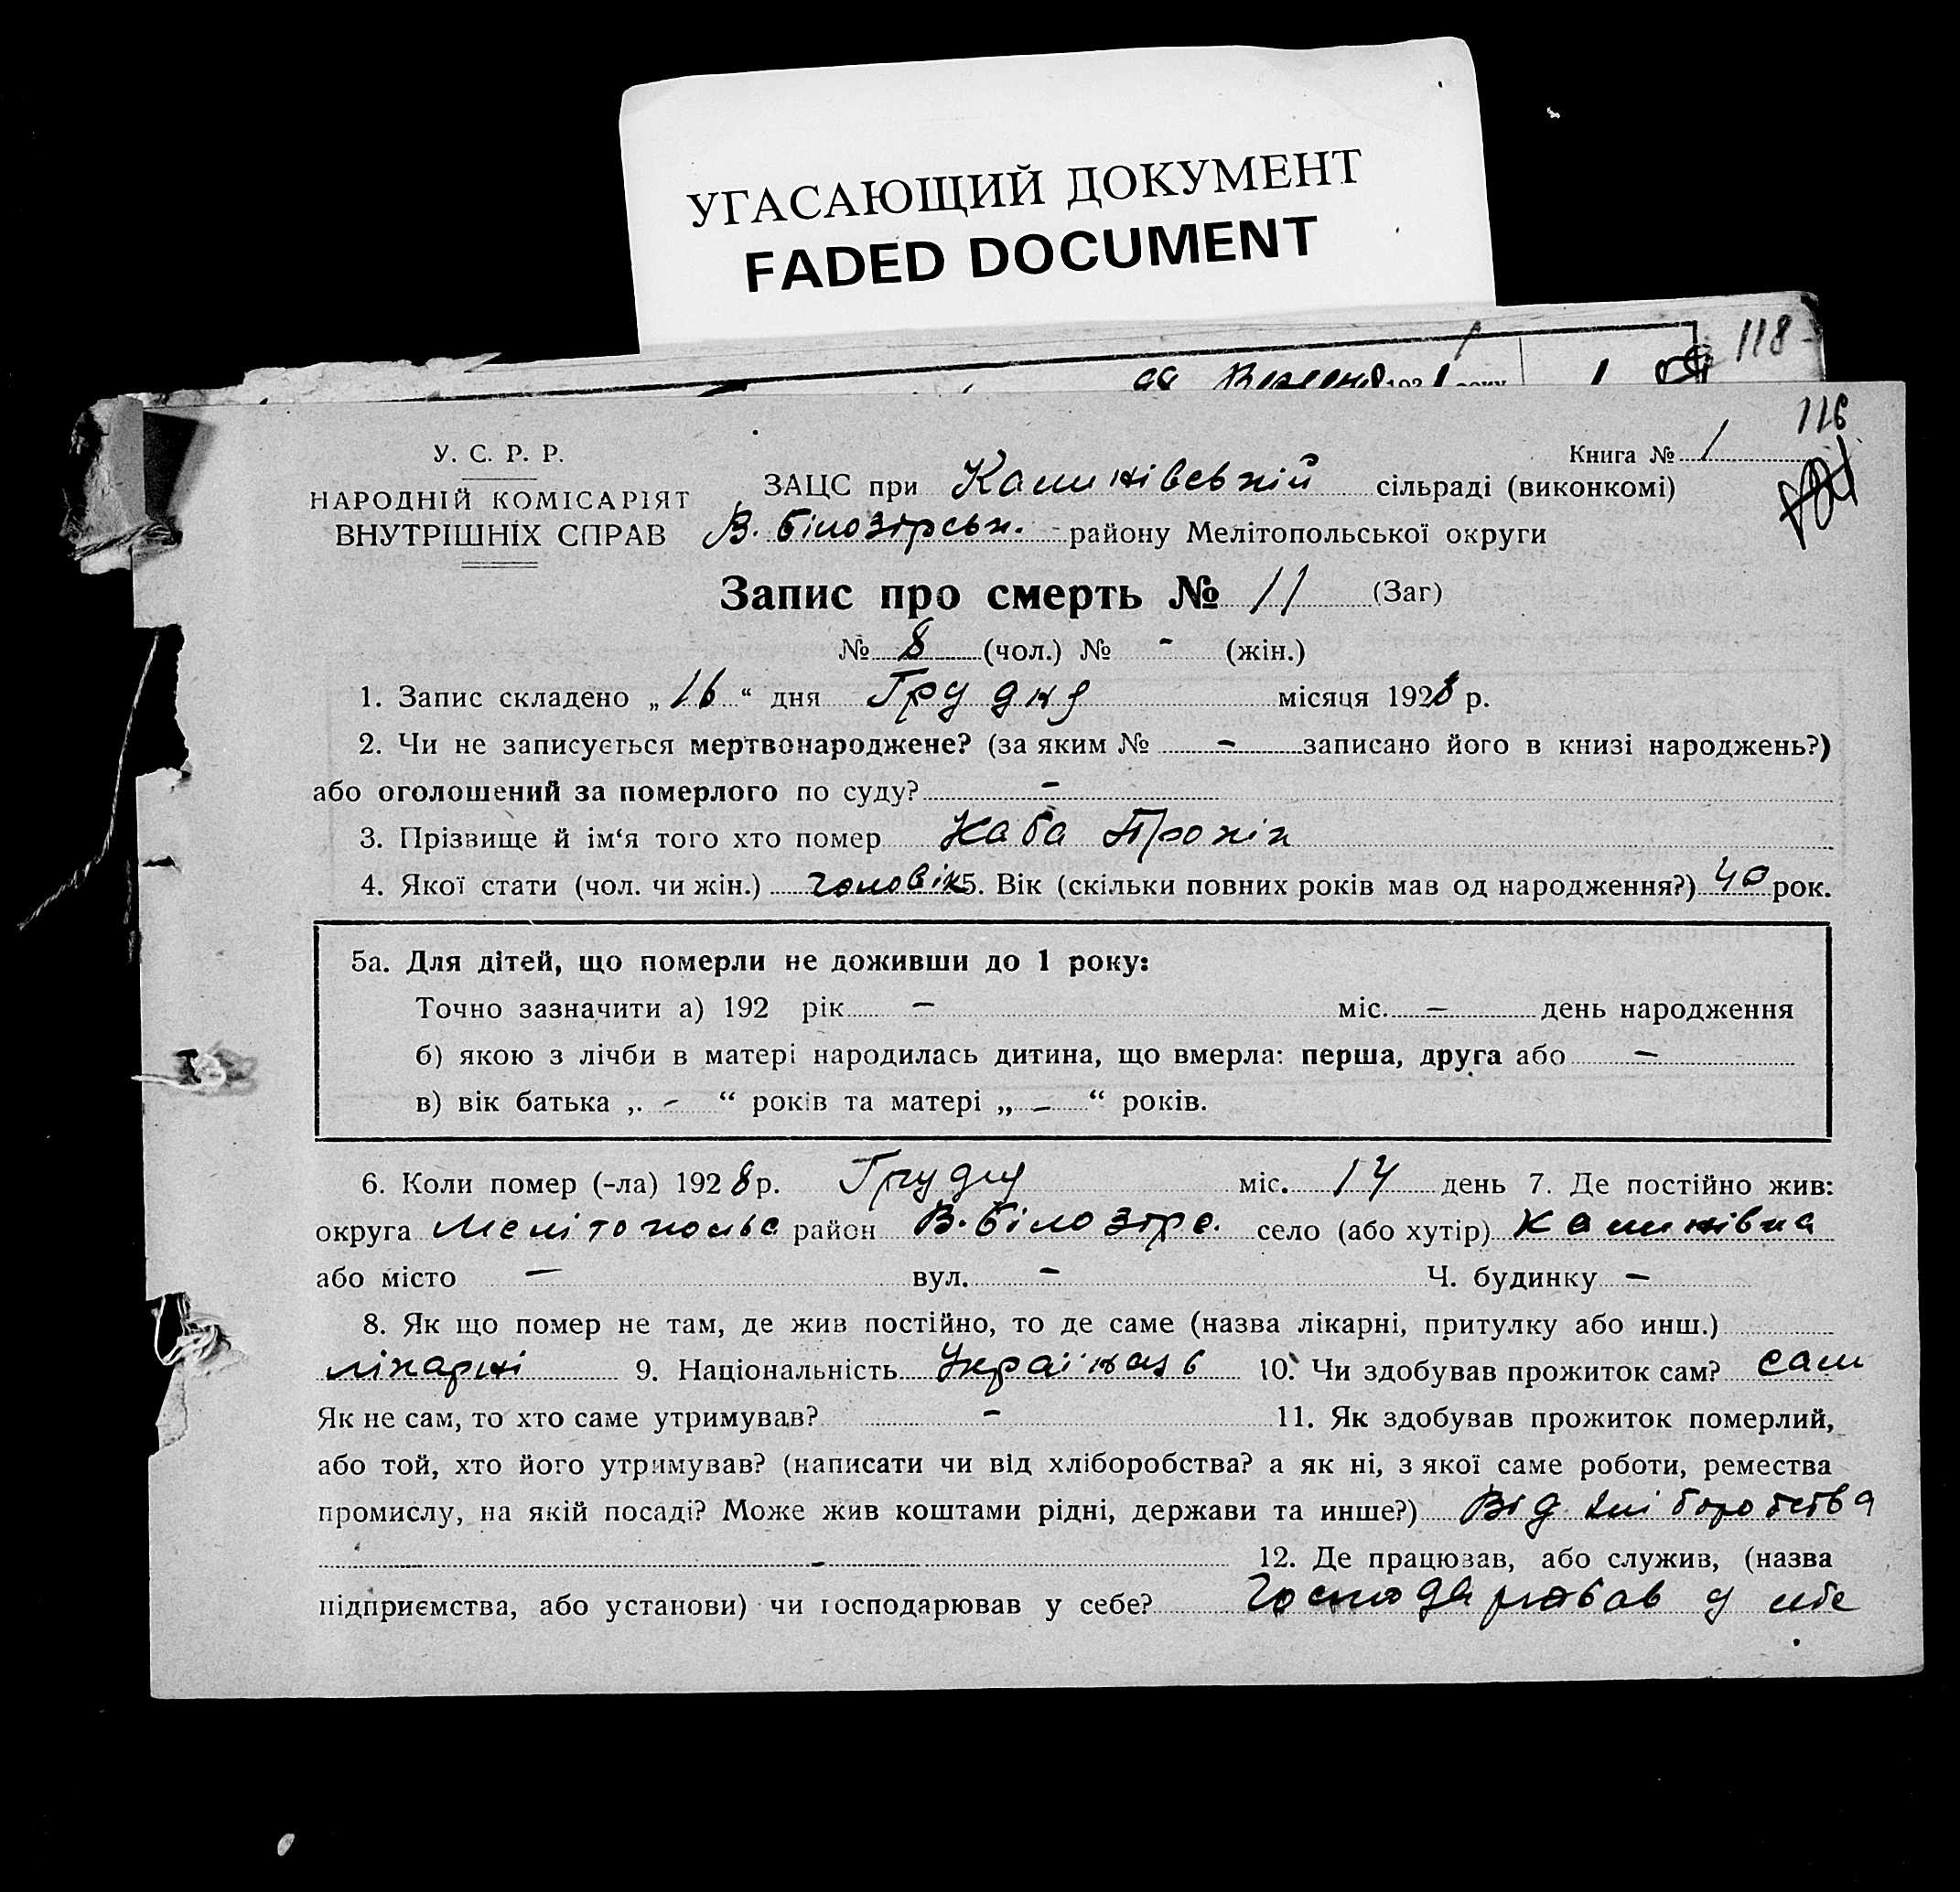 УГАСАЮЩИЙ ДОКУМЕНТ
FADED DOCUMENT
118
192 року
116
У. С. Р. Р.
НАРОДНІЙ КОМІСАРІЯТ
ВНУТРІШНІХ СПРАВ
Книга № 1
ЗАЦС при Калинівській сільраді (виконкомі)
В. Білозірськ. району Мелітопольської округи
Запис про смерть № 11 (Заг)
№ 8 (чол.) № - (жін.)
1. Запис складено „16“ дня Грудня місяця 1928 р.
2. Чи не записується мертвонароджене? (за яким № – записано його в книзі народжень?)
або оголошений за померлого по суду? –
3. Прізвище й ім‘я того хто помер Каба Прокіп
4. Якої стати (чол. чи жін.) чоловік 5. Вік (скільки повних років мав од народження?) 40 рок.
5а. Для дітей, що померли не доживши до 1 року:
Точно зазначити а) 192 рік – міс. – день народження
б) якою з лічби в матері народилась дитина, що вмерла: перша, друга або –
в) вік батька „ - “ років та матері „ – “ років.
6. Коли помер (-ла) 1928 р. Грудня міс. 14 день 7. Де постійно жив:
округа Мелітопольс район В. Білозірс. село (або хутір) Калинівка
або місто – вул. – Ч. будинку –
8. Як що помер не там, де жив постійно, то де саме (назва лікарні, притулку або инш.)
лікарні 9. Національність Українець 10. Чи здобував прожиток сам? сам
Як не сам, то хто саме утримував? – 11. Як здобував прожиток померлий,
або той, хто його утримував? (написати чи від хліборобства? а як ні, з якої саме роботи, ремества
промислу, на якій посаді? Може жив коштами рідні, держави та инше?) Від хліборобства
– 12. Де працював, або служив, (назва
підприємства, або установи) чи господарював у себе? Господарював у себе